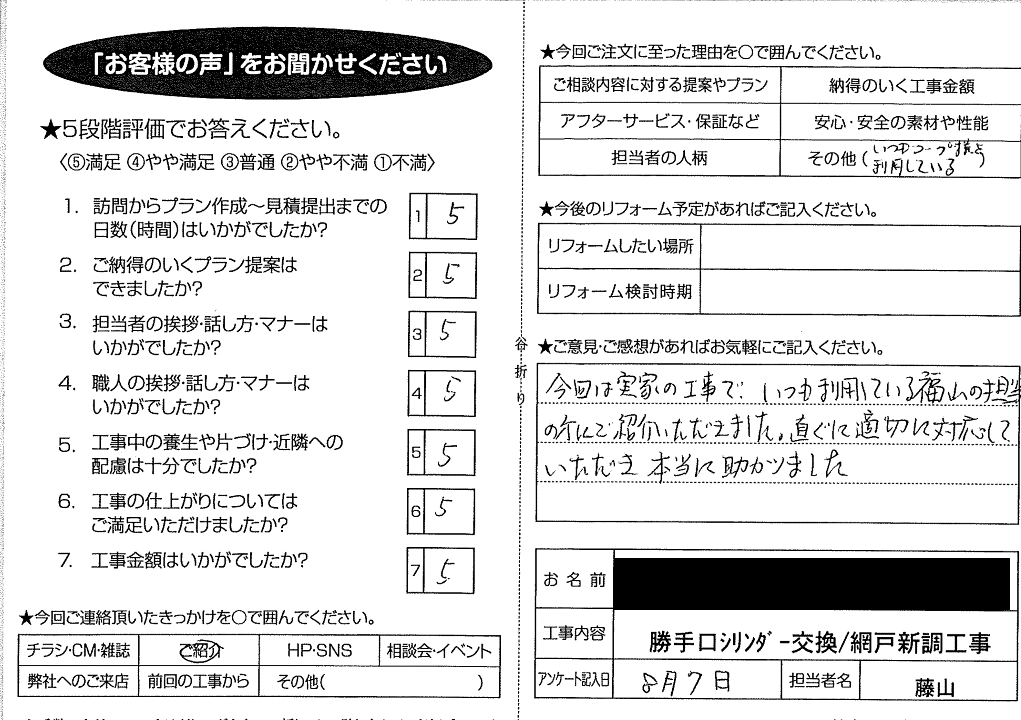 「お客様の声」をお聞かせください
★5段階評価でお答えください。
〈⑤満足 ④やや満足 ③普通 ②やや不満 ①不満〉
1. 訪問からプラン作成～見積提出までの
日数(時間)はいかがでしたか?
1 5
2. ご納得のいくプラン提案は
できましたか?
2 5
3. 担当者の挨拶・話し方・マナーは
いかがでしたか?
3 5
4. 職人の挨拶・話し方・マナーは
いかがでしたか?
4 5
5. 工事中の養生や片づけ・近隣への
配慮は十分でしたか?
5 5
6. 工事の仕上がりについては
ご満足いただけましたか?
6 5
7. 工事金額はいかがでしたか?
7 5
★今回ご連絡頂いたきっかけを○で囲んでください。
チラシ・CM・雑誌 ご紹介 HP・SNS 相談会・イベント
弊社へのご来店 前回の工事から その他( )
谷折り
★今回ご注文に至った理由を○で囲んでください。
ご相談内容に対する提案やプラン 納得のいく工事金額
アフターサービス・保証など 安心・安全の素材や性能
担当者の人柄 その他(いつもコープ
利用している)
★今後のリフォーム予定があればご記入ください。
リフォームしたい場所
リフォーム検討時期
★ご意見・ご感想があればお気軽にご記入ください。
今回は実家の工事で、いつも利用している福山の担当
の方にご紹介いただきました。直ぐに適切に対応して
いただき 本当に助かりました
お名前
工事内容 勝手口シリンダー交換/網戸新調工事
アンケート記入日 8月7日 担当者名 藤山